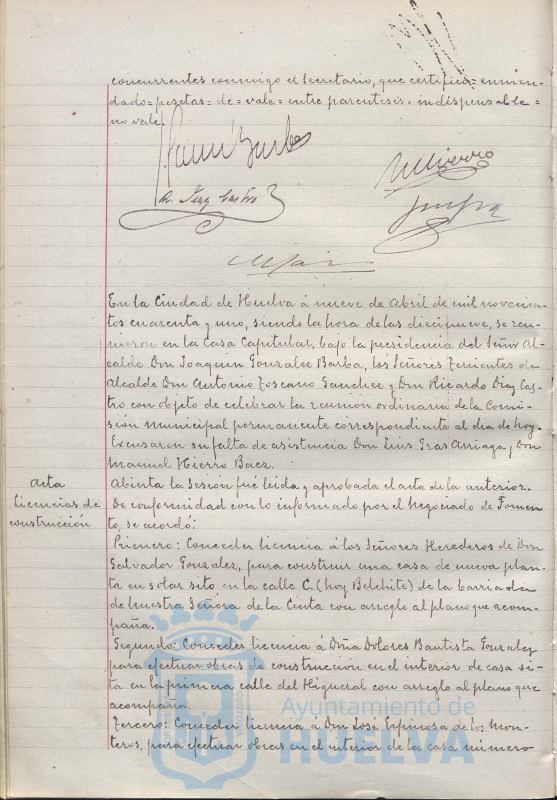 concurrentes conmigo el Secretario, que certifico = enmen-
dado = pesetas = de = vale = entre parentesis = indispensable =
no vale.
R. Diaz Castro
M Hierro
En la Ciudad de Huelva á nueve de Abril de mil novecien-
tos cuarenta y uno, siendo la hora de las diecinueve, se reu-
nieron en la Casa Capitular, bajo la presidencia del Señor Al-
calde Don Joaquin Gonzalez Barba, los Señores Tenientes de
Alcalde Don Antonio Toscano Sanchez y Don Ricardo Diaz Cas-
tro con objeto de celebrar la reunion ordinaria de la Comi-
sión Municipal permanente correspondiente al dia de hoy.
Excusaron su falta de asistencia Don Luis Gras Arriaga y Don
Manuel Hierro Baez.
Acta
Abierta la Sesión fué leida y aprobada el acta de la anterior.
Licencias de
construcción
De conformidad con lo informado por el Negociado de Fomen-
to, se acordó:
Primero: Conceder licencia á los Señores Herederos de Don
Salvador Gonzalez, para construir una casa de nueva plan-
ta en solar sito en la calle C. (hoy Belchite) de la barriada
de Nuestra Señora de la Cinta con arreglo al plano que acom-
paña.
Segundo: Conceder licencia á Doña Dolores Bautista Gonzalez
para efectuar obras de construcción en el interior de casa si-
ta en la primera calle del Higueral con arreglo al plano que
acompaña.
Tercero: Conceder licencia á Don José Espinosa de los Mon-
teros, para efectuar obras en el interior de la casa número
Ayuntamiento de
HUELVA